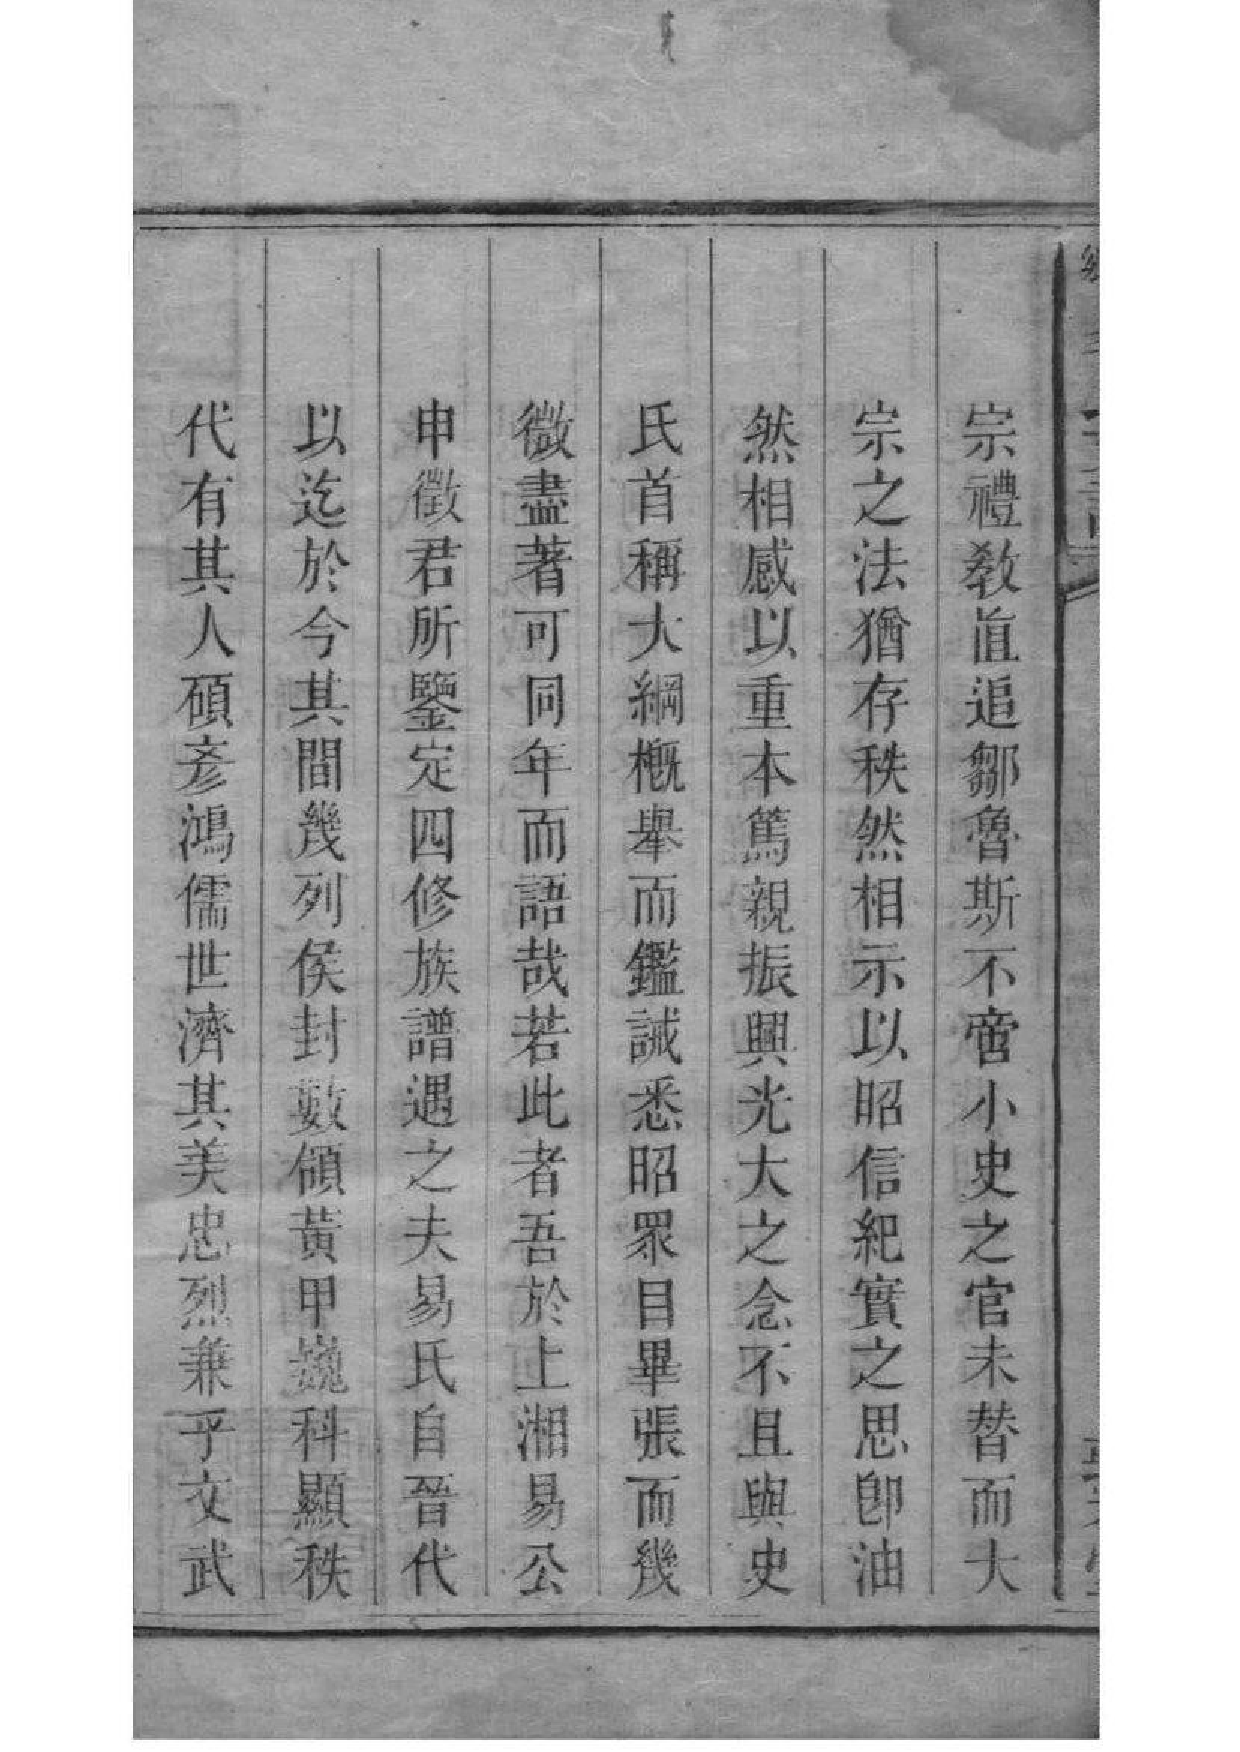 宗禮敎直追鄒魯斯不啻小史之官未替而大
宗之法猶存秩然相示以昭信紀實之思卽油
然相感以重本篤親振興光大之念不且與史
氏首稱大綱槪舉而鑑誡悉昭眾目畢張而幾
微盡著可同年而語哉若此者吾於上湘易公
申徵君所鑒定四修族譜遇之夫易氏自晉代
以迄於今其間幾列侯封數傾黃甲巍科顯秩
代有其人碩彥鴻儒世濟其美忠烈兼乎文武